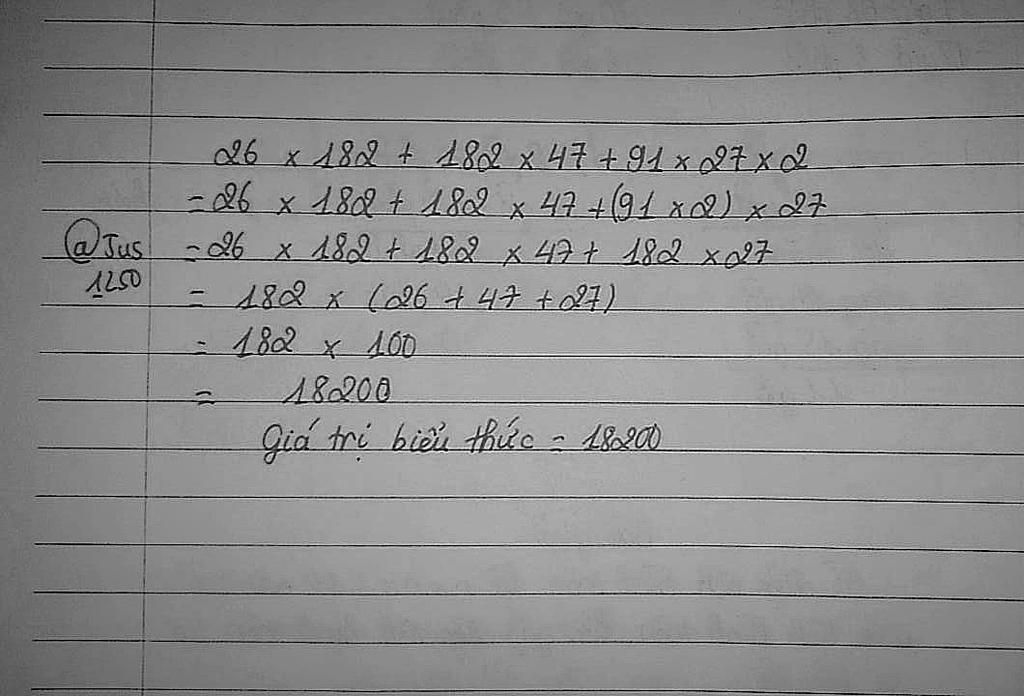 26 × 182 + 182 × 47 + 91 × 27 × 2
= 26 × 182 + 182 × 47 + (91 × 2) × 27
@Jus
1250
= 26 × 182 + 182 × 47 + 182 × 27
= 182 × (26 + 47 + 27)
= 182 × 100
= 18200
Giá trị biểu thức = 18200